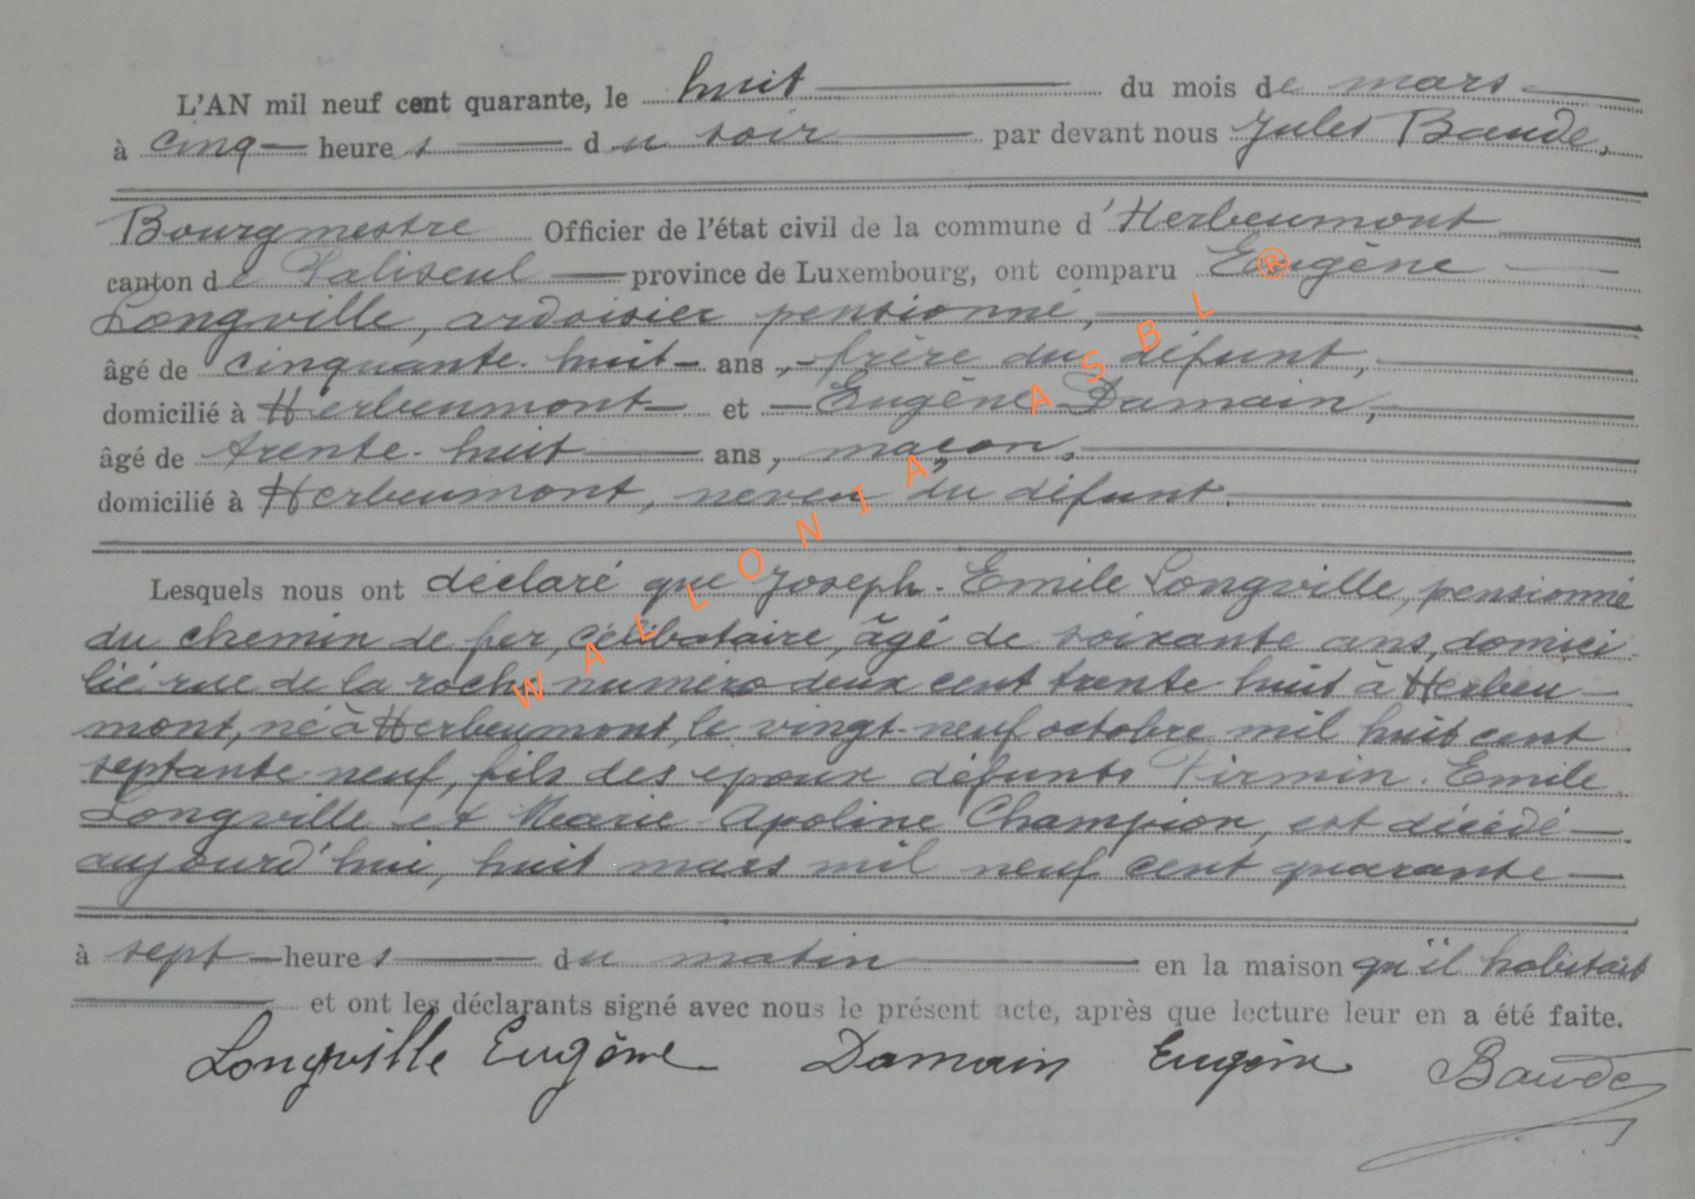 L'AN mil neuf cent quarante, le huit du mois de mars
à cinq heures du soir par devant nous Jules Baude,
Bourgmestre Officier de l'état civil de la commune d'Herbeumont
canton de Paliseul province de Luxembourg, ont comparu Eugène
Longville, ardoisier pensionné,
âgé de cinquante-huit ans, frère du défunt,
domicilié à Herbeumont et Eugène Damain,
âgé de trente-huit ans, maçon,
domicilié à Herbeumont, neveu du défunt.
Lesquels nous ont déclaré que Joseph-Emile Longville, pensionné
du chemin de fer, célibataire, âgé de soixante ans, domici-
lié rue de la roche numéro deux cent trente huit à Herbeu-
mont, né à Herbeumont, le vingt-neuf octobre mil huit cent
septante-neuf, fils des époux défunts Firmin-Emile
Longville et Marie-Apoline Champion, est décédé
aujourd'hui, huit mars mil neuf cent quarante
à sept heures du matin en la maison qu'il habitait
et ont les déclarants signé avec nous le présent acte, après que lecture leur en a été faite.
Longville Eugène Damain Eugène Baude
WALLONIA ASBL ®